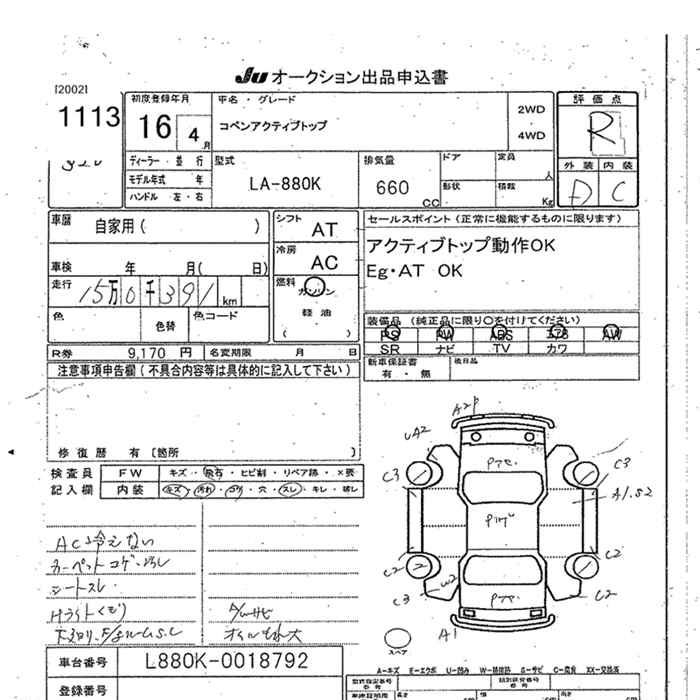 JU オークション出品申込書
[2002]
1113
初度登録年月
16 4月
車名・グレード
コペンアクティブトップ
2WD
4WD
評価点
R
外装 内装
D C
ディーラー・並行
モデル年式 年
ハンドル 左・右
型式
LA-880K
排気量
660 CC
ドア
形状
定員 人
積載 Kg
車歴 自家用( )
車検 年 月( 日)
走行 15万0千391 km
色
色替
色コード
シフト AT
冷房 AC
燃料 ガソリン
軽油
( )
セールスポイント(正常に機能するものに限ります)
アクティブトップ動作OK
Eg・AT OK
装備品(純正品に限り○を付けてください)
PS PW ABS エアB AW
SR ナビ TV カワ
新車保証書
有・無
後日品
R券 9,170 円 名変期限 月 日
注意事項申告欄(不具合内容等は具体的に記入して下さい)
修復歴 有〔箇所 〕
検査員
記入欄
FW キズ・飛石・ヒビ割・リペア跡・×要
内装 キズ・汚れ・コゲ・穴・スレ・キレ・破レ
AC冷えない
カーペットコゲ・汚レ
シートスレ
Hライトくもり
A2P
UA2
C3
C3
A1.S2
C2
C2
W2
C3
C2
A1
スペア
A-キズ E-エクボ U-凹み W-補修跡 S-サビ C-腐食 XX-交換済
車台番号 L880K-0018792
登録番号
型式指定番号
類別区分番号
長さ
幅
高さ